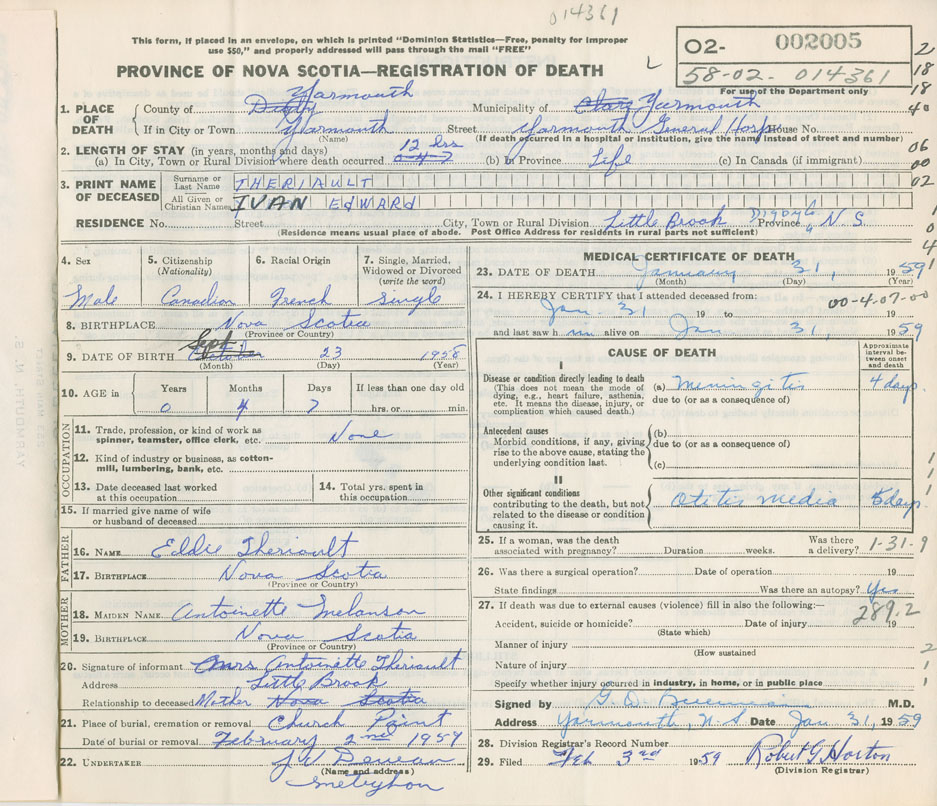 014361
This form, if placed in an envelope, on which is printed "Dominion Statistics—Free, penalty for improper
use $50," and properly addressed will pass through the mail "FREE"
PROVINCE OF NOVA SCOTIA—REGISTRATION OF DEATH
O2- 002005
58-02- 014361
For use of the Department only
1. PLACE OF DEATH
County of Digby Yarmouth Municipality of Clare Yarmouth
If in City or Town Yarmouth Street Yarmouth General Hosp. House No.
(Name) (If death occurred in a hospital or institution, give the name instead of street and number)
2. LENGTH OF STAY (in years, months and days) 12 hrs
(a) In City, Town or Rural Division where death occurred 0-4-7 (b) In Province Life (c) In Canada (if immigrant)
3. PRINT NAME OF DECEASED
Surname or Last Name THERIAULT
All Given or Christian Names IVAN EDWARD
RESIDENCE No. Street City, Town or Rural Division Little Brook Digby Co Province N.S.
(Residence means usual place of abode. Post Office Address for residents in rural parts not sufficient)
4. Sex 5. Citizenship (Nationality) 6. Racial Origin 7. Single, Married, Widowed or Divorced (write the word)
Male Canadian French Single
8. BIRTHPLACE Nova Scotia
(Province or Country)
9. DATE OF BIRTH Sept. October 23 1958
(Month) (Day) (Year)
10. AGE in Years Months Days If less than one day old
0 4 7 hrs. or min.
OCCUPATION
11. Trade, profession, or kind of work as spinner, teamster, office clerk, etc. None
12. Kind of industry or business, as cotton-mill, lumbering, bank, etc.
13. Date deceased last worked at this occupation
14. Total yrs. spent in this occupation
15. If married give name of wife or husband of deceased
FATHER
16. NAME Eddie Theriault
17. BIRTHPLACE Nova Scotia
(Province or Country)
MOTHER
18. MAIDEN NAME Antoinette Melanson
19. BIRTHPLACE Nova Scotia
(Province or Country)
20. Signature of informant Mrs Antoinette Theriault
Address Little Brook
Relationship to deceased Mother Nova Scotia
21. Place of burial, cremation or removal Church Point
Date of burial or removal February 2nd 1959
22. UNDERTAKER
(Name and address)
MEDICAL CERTIFICATE OF DEATH
23. DATE OF DEATH January 31, 1959
(Month) (Day) (Year)
24. I HEREBY CERTIFY that I attended deceased from: 00-4-07-00
Jan. 31 19 to 19
and last saw him alive on Jan 31, 1959
CAUSE OF DEATH
Approximate interval between onset and death
I
Disease or condition directly leading to death (a) Meningitis 4 days
(This does not mean the mode of dying, e.g., heart failure, asthenia, etc. It means the disease, injury, or complication which caused death.)
due to (or as a consequence of)
Antecedent causes
Morbid conditions, if any, giving rise to the above cause, stating the underlying condition last.
(b)
due to (or as a consequence of)
(c)
II
Other significant conditions contributing to the death, but not related to the disease or condition causing it. Otitis media 5 days
25. If a woman, was the death associated with pregnancy? Duration weeks. Was there a delivery? 1-31-9
26. Was there a surgical operation? Date of operation 19
State findings Was there an autopsy? Yes
27. If death was due to external causes (violence) fill in also the following:— 289.2
Accident, suicide or homicide? Date of injury 19
(State which)
Manner of injury
(How sustained
Nature of injury
Specify whether injury occurred in industry, in home, or in public place
Signed by G. D. M.D.
Address Yarmouth, N.S. Date Jan 31, 1959
28. Division Registrar's Record Number
29. Filed Feb 3rd 1959 Robert G. Horton
(Division Registrar)